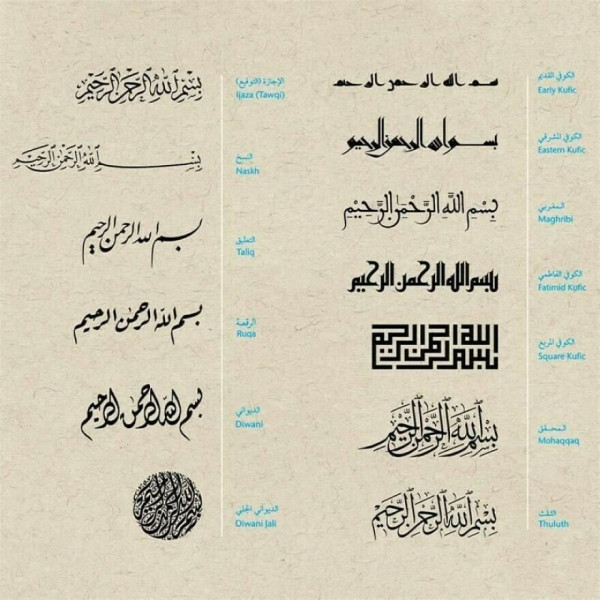 بِسْمِ اللهِ الرَّحْمٰنِ الرَّحِيْمِ
الإجازة (التوقيع)
Ijaza (Tawqi)
بِسْمِ اللهِ الرَّحْمٰنِ الرَّحِيْمِ
النسخ
Naskh
بسم الله الرحمن الرحيم
التعليق
Taliq
بسم الله الرحمن الرحيم
الرقعة
Ruqa
بسم الله الرحمن الرحيم
الديواني
Diwani
بسم الله الرحمن الرحيم
الديواني الجلي
Diwani Jali
بسم الله الرحمن الرحيم
الكوفي القديم
Early Kufic
بسم الله الرحمن الرحيم
الكوفي المشرقي
Eastern Kufic
بِسْمِ اللَّهِ الرَّحْمَٰنِ الرَّحِيمِ
المغربي
Maghribi
بسم الله الرحمن الرحيم
الكوفي الفاطمي
Fatimid Kufic
بسم الله الرحمن الرحيم
الكوفي المربع
Square Kufic
بِسْمِ اللَّهِ الرَّحْمٰنِ الرَّحِيْمِ
المحقق
Mohaqqaq
بِسْمِ اللهِ الرَّحْمٰنِ الرَّحِيْمِ
الثلث
Thuluth